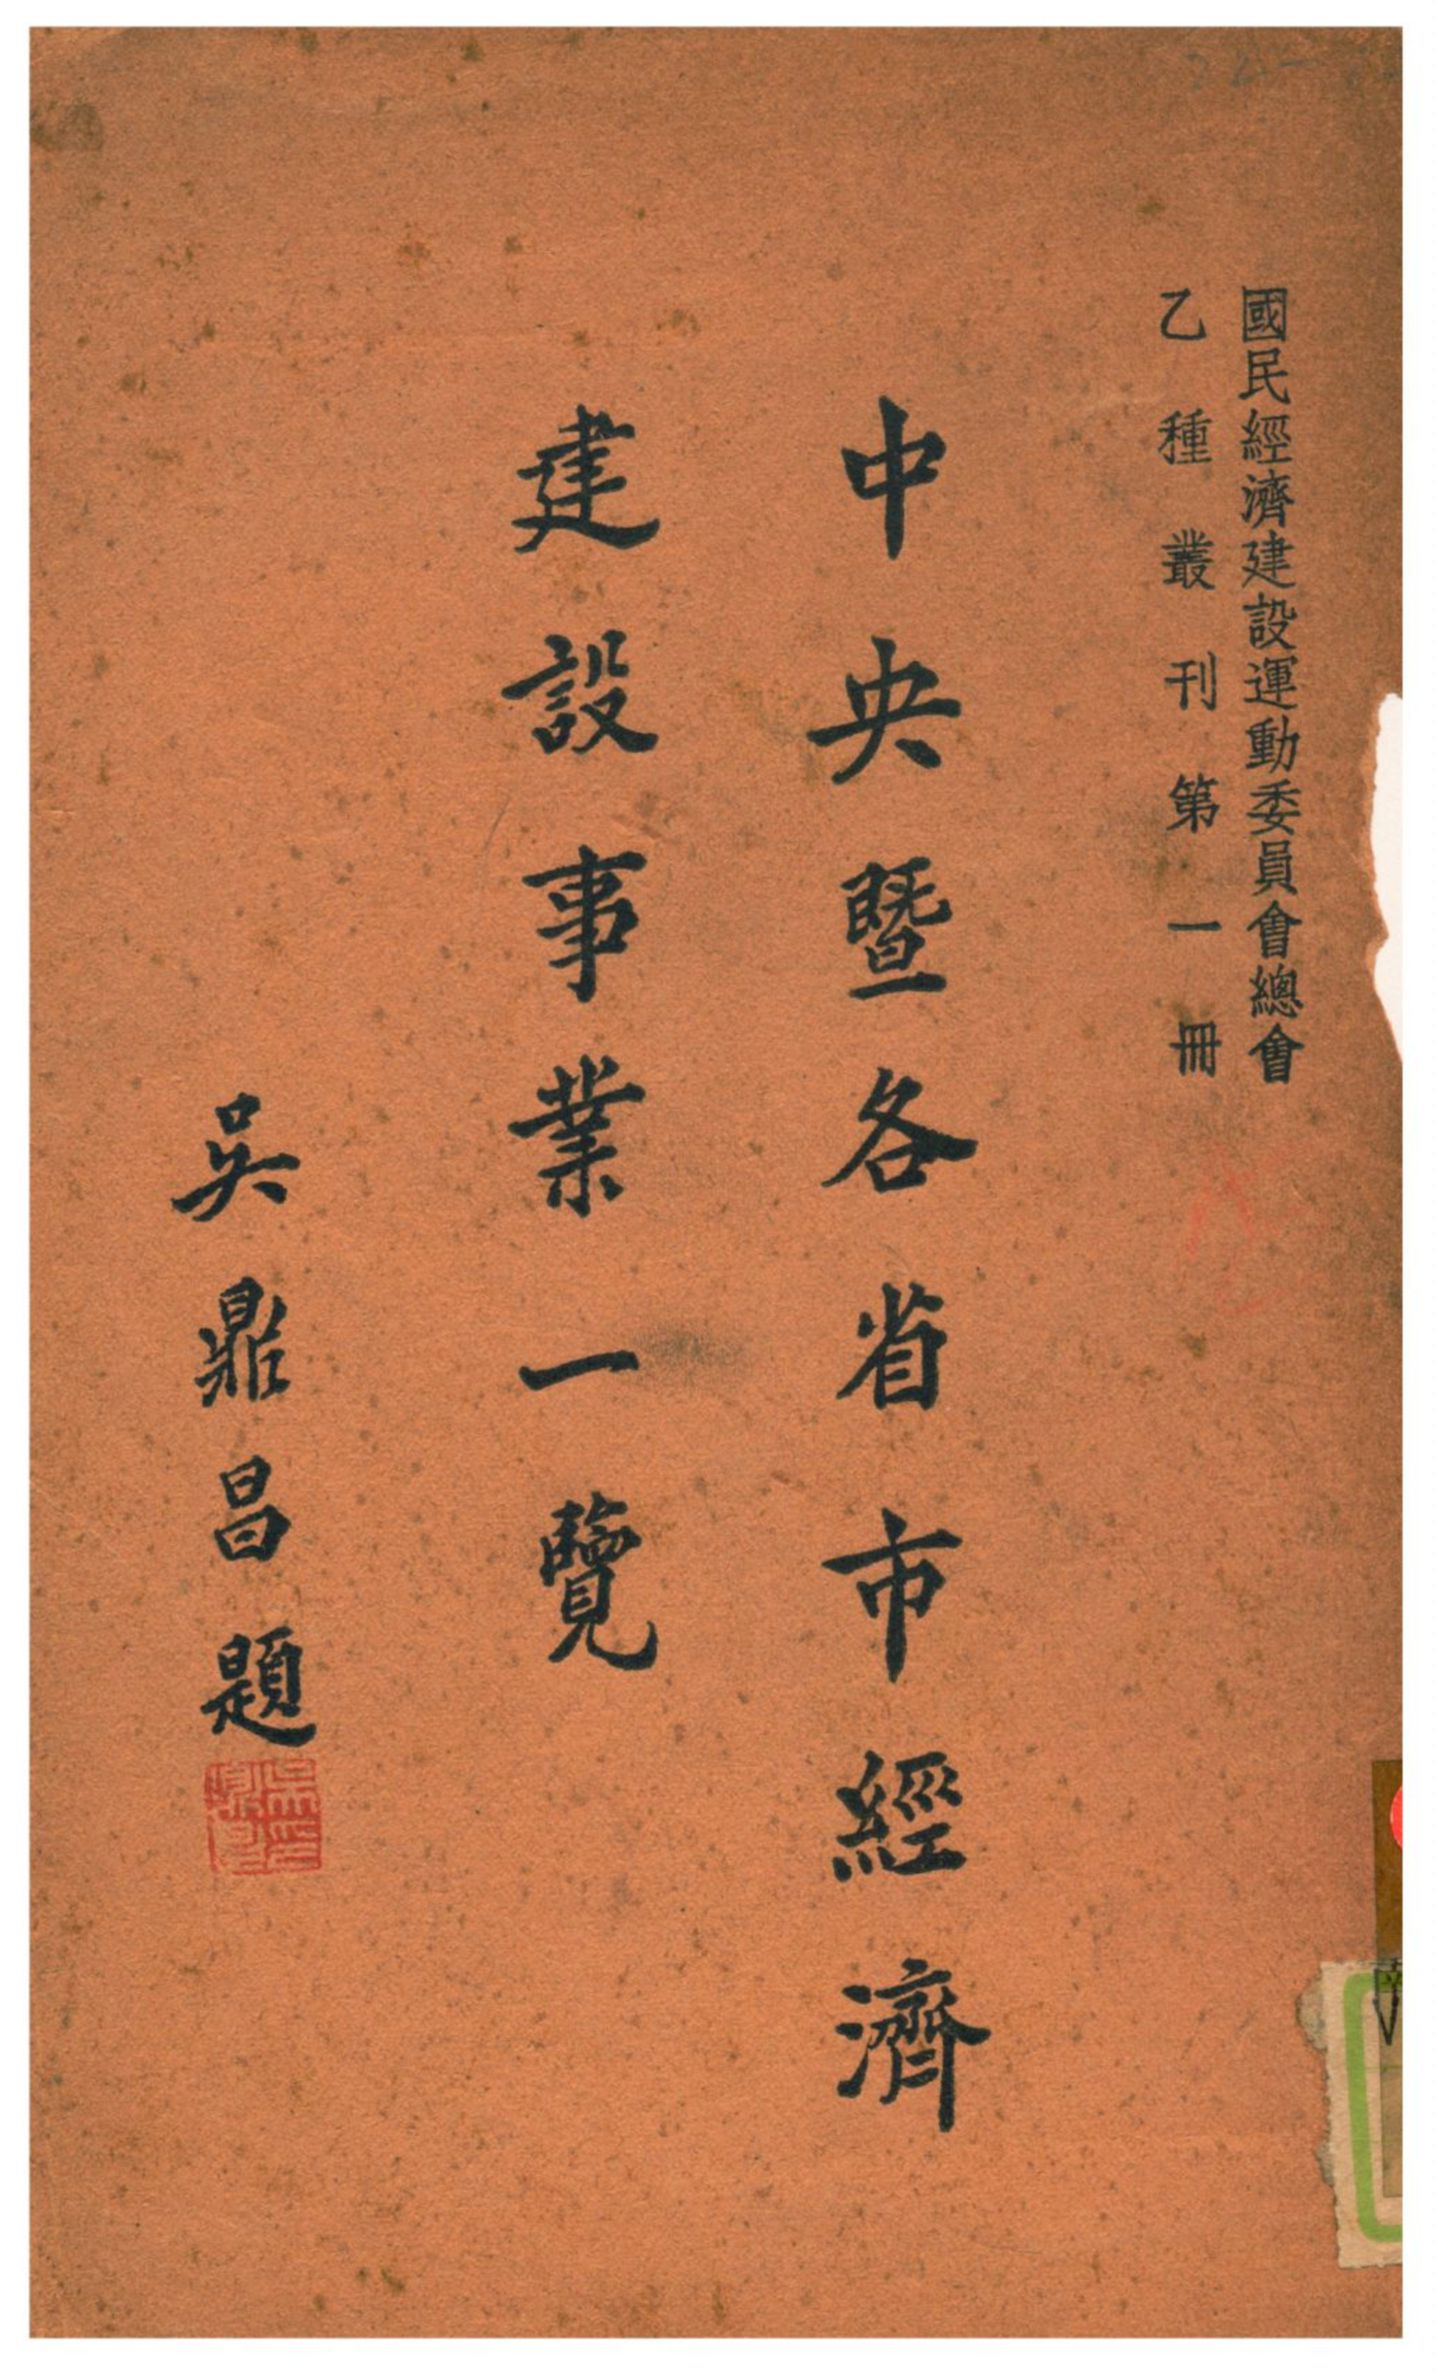 國民經濟建設運動委員會總會
乙種叢刊第一冊
中央暨各省市經濟
建設事業一覽
吳鼎昌題